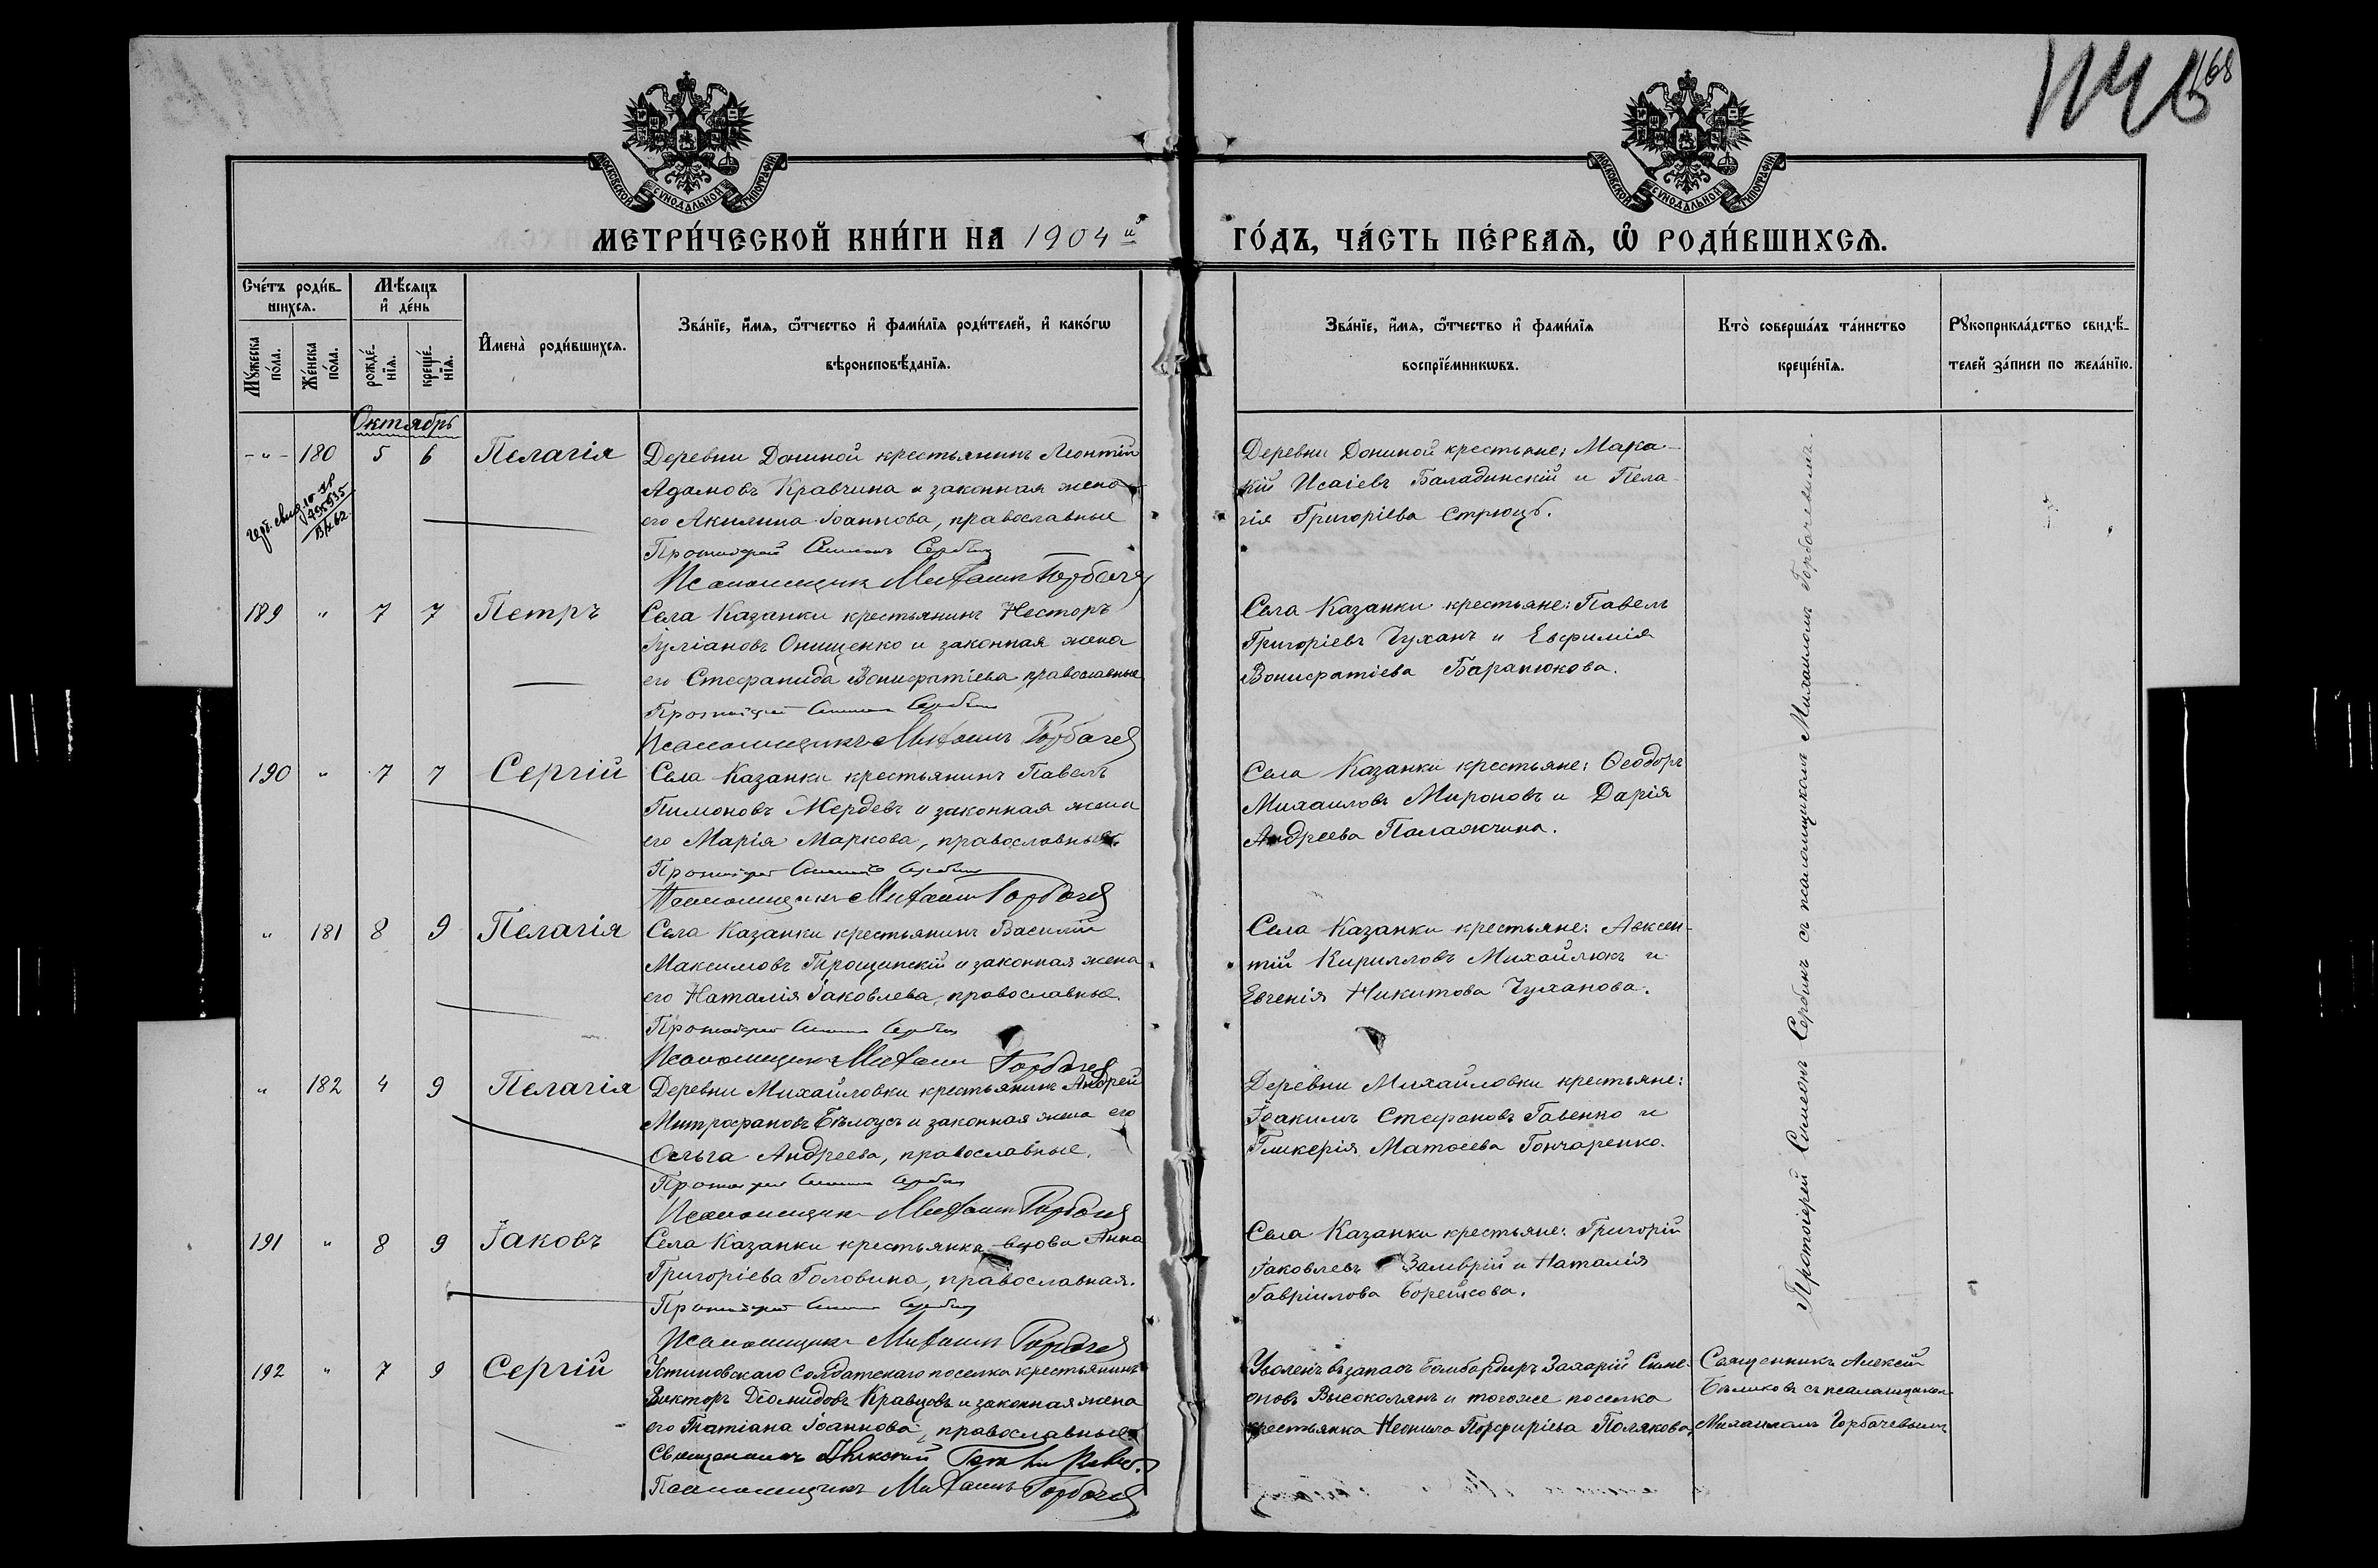 168
МОСКОВСКОЙ СУНОДАЛЬНОЙ ТИПОГРАФІИ
МОСКОВСКОЙ СУНОДАЛЬНОЙ ТИПОГРАФІИ
МЕТРИ́ЧЕСКОЙ КНИ́ГИ НА 1904 й
ГО́ДЪ, ЧА́СТЬ ПЕ́РВАѦ, Ѡ҆ РОДИ́ВШИХСѦ.
Сче́тъ роди́в-
шихсѧ.
Мѣ́сѧцъ
и҆ де́нь
Мꙋ́жеска
по́ла.
Же́нска
по́ла.
рожде́-
нїѧ.
креще́-
нїѧ.
И҆мена̀ роди́вшихсѧ.
Зва́нїе, и҆́мѧ, ѻ҆́тчество и҆ фами́лїѧ роди́телей, и҆ како́гѡ
вѣроисповѣ́данїѧ.
Зва́нїе, и҆́мѧ, ѻ҆́тчество и҆ фами́лїѧ
воспрїе́мникѡвъ.
Кто̀ соверша́лъ та́инство
креще́нїѧ.
Рꙋкоприкла́дство свидѣ́-
телей за́писи по жела́нїю.
Октябрь
-"- 180 5 6 Пелагія
Деревни Дониной крестьянинъ Леонтій
Адамовъ Кравчина и законная жена
его Акилина Іоаннова, православные
Протоіерей Симеонъ Сербин
Псаломщикъ Михаилъ Горбачев
Деревни Дониной крестьяне: Мака-
кій Исаіевъ Баладинскій и Пела-
гія Григоріева Стрюцъ.
189 " 7 7 Петръ
Села Казанки крестьянинъ Несторъ
Іуліановъ Онищенко и законная жена
его Стефанида Вонифатіева, православные
Протоіерей Симеон Сербин
Псаломщикъ Михаилъ Горбачев
Села Казанки крестьяне: Павелъ
Григоріевъ Чуханъ и Евфимія
Вонифатіева Баранюкова.
190 " 7 7 Сергій
Села Казанки крестьянинъ Павелъ
Пимоновъ Жердевъ и законная жена
его Марія Маркова, православные.
Протоіерей Симеон Сербин
Псаломщикъ Михаилъ Горбачев
Села Казанки крестьяне: Ѳеодоръ
Михаиловъ Мироновъ и Дарія
Андреева Паламкчина.
" 181 8 9 Пелагія
Села Казанки крестьянинъ Василій
Максимовъ Трощинскій и законная жена
его Наталія Іаковлева, православные.
Протоіерей Симеон Сербин
Псаломщикъ Михаилъ Горбачев
Села Казанки крестьяне: Авксен-
тій Кирилловъ Михайлюкъ и
Евгенія Никитова Чуханова.
" 182 4 9 Пелагія
Деревни Михайловки крестьянинъ Андрей
Митрофановъ Бѣлоусъ и законная жена его
Ольга Андреева, православные.
Протоіерей Симеон Сербин
Псаломщикъ Михаилъ Горбачев
Деревни Михайловки крестьяне:
Іоакимъ Стефановъ Гавенко и
Гликерія Матѳеева Гончаренко.
191 " 8 9 Іаковъ
Села Казанки крестьянка вдова Анна
Григоріева Головина, православная.
Протоіерей Симеон Сербин
Псаломщикъ Михаилъ Горбачев
Села Казанки крестьяне: Григорій
Іаковлевъ Заливрій и Наталія
Гавріилова Борейкова.
Протоіерей Симеонъ Сербинъ съ псаломщикомъ Михаиломъ Горбачевымъ.
192 " 7 9 Сергій
Устиновскаго Солдатскаго поселка крестьянинъ
Викторъ Діомидовъ Кравцовъ и законная жена
его Татіана Іоаннова, православные
Священникъ Алексій
Псаломщикъ Михаилъ Горбачев
Уволенъ въ запасъ бомбардиръ Захарій Симе-
оновъ Высоколянъ и тогоже поселка
крестьянка Неонила Порфиріева Полякова.
Священникъ Алексій
Бѣликовъ съ псаломщикомъ
Михаиломъ Горбачевымъ